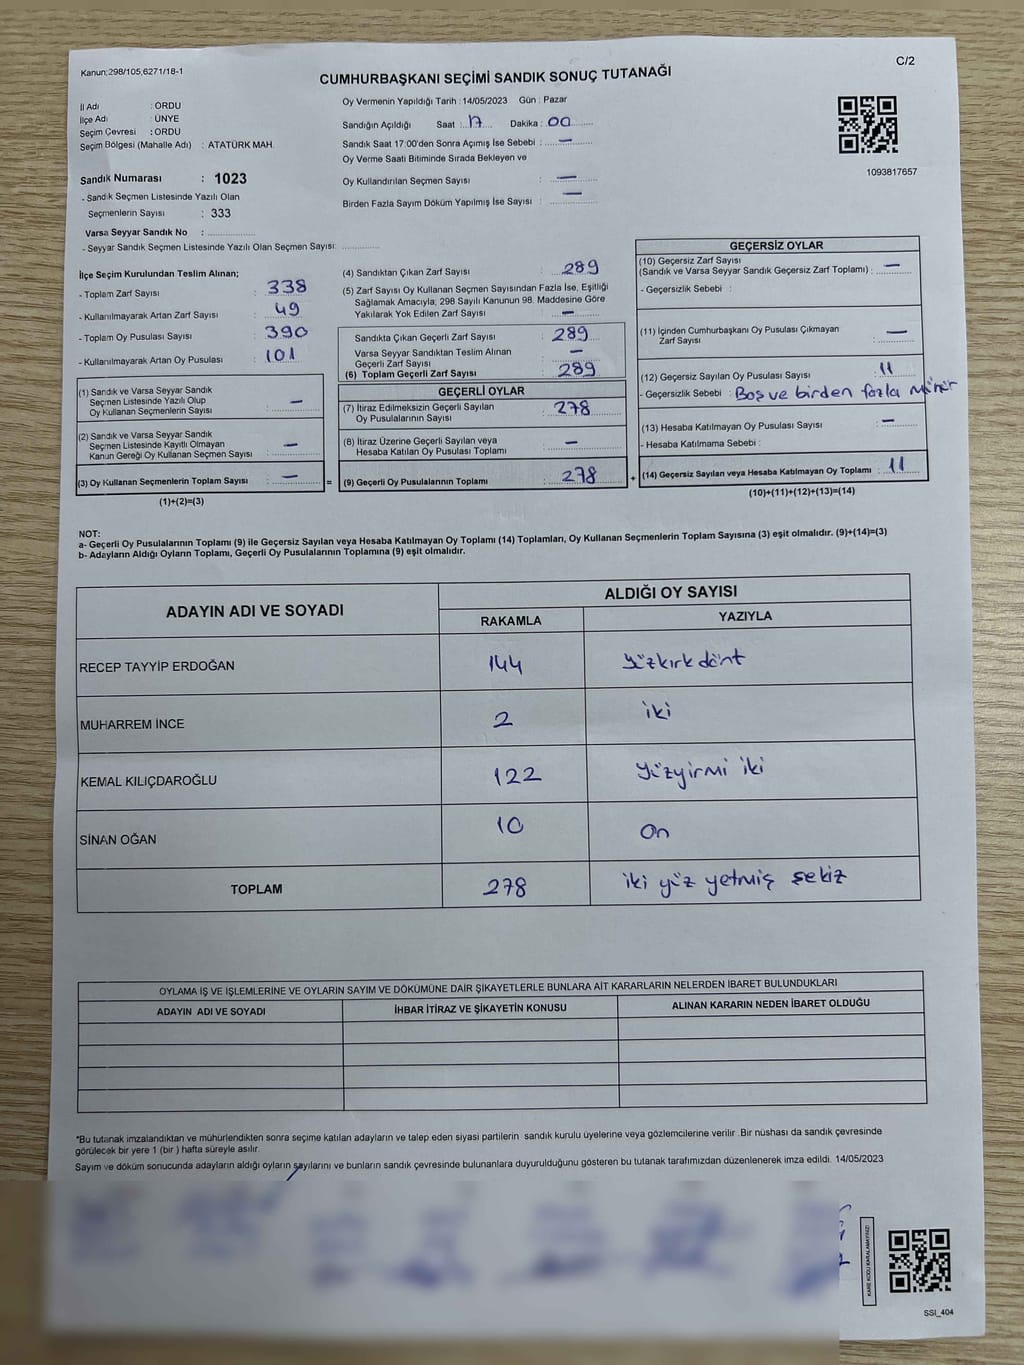 Kanun:298/105,6271/18-1
C/2
CUMHURBAŞKANI SEÇİMİ SANDIK SONUÇ TUTANAĞI
İl Adı : ORDU
İlçe Adı : ÜNYE
Seçim Çevresi : ORDU
Seçim Bölgesi (Mahalle Adı) : ATATÜRK MAH.
Sandık Numarası : 1023
- Sandık Seçmen Listesinde Yazılı Olan
Seçmenlerin Sayısı : 333
Varsa Seyyar Sandık No :
- Seyyar Sandık Seçmen Listesinde Yazılı Olan Seçmen Sayısı:
Oy Vermenin Yapıldığı Tarih : 14/05/2023 Gün : Pazar
Sandığın Açıldığı Saat : 17 Dakika : 00
Sandık Saat 17:00'den Sonra Açımış İse Sebebi : —
Oy Verme Saati Bitiminde Sırada Bekleyen ve
Oy Kullandırılan Seçmen Sayısı : —
Birden Fazla Sayım Döküm Yapılmış İse Sayısı : —
1093817657
İlçe Seçim Kurulundan Teslim Alınan;
- Toplam Zarf Sayısı : 338
- Kullanılmayarak Artan Zarf Sayısı : 49
- Toplam Oy Pusulası Sayısı : 390
- Kullanılmayarak Artan Oy Pusulası : 101
(1) Sandık ve Varsa Seyyar Sandık
Seçmen Listesinde Yazılı Olup
Oy Kullanan Seçmenlerin Sayısı : —
(2) Sandık ve Varsa Seyyar Sandık
Seçmen Listesinde Kayıtlı Olmayan
Kanun Gereği Oy Kullanan Seçmen Sayısı : —
(3) Oy Kullanan Seçmenlerin Toplam Sayısı : —
(1)+(2)=(3)
=
(4) Sandıktan Çıkan Zarf Sayısı : 289
(5) Zarf Sayısı Oy Kullanan Seçmen Sayısından Fazla İse, Eşitliği
Sağlamak Amacıyla; 298 Sayılı Kanunun 98. Maddesine Göre
Yakılarak Yok Edilen Zarf Sayısı : —
Sandıkta Çıkan Geçerli Zarf Sayısı : 289
Varsa Seyyar Sandıktan Teslim Alınan
Geçerli Zarf Sayısı : —
(6) Toplam Geçerli Zarf Sayısı : 289
GEÇERLİ OYLAR
(7) İtiraz Edilmeksizin Geçerli Sayılan
Oy Pusulalarının Sayısı : 278
(8) İtiraz Üzerine Geçerli Sayılan veya
Hesaba Katılan Oy Pusulası Toplamı : —
(9) Geçerli Oy Pusulalarının Toplamı : 278
+
GEÇERSİZ OYLAR
(10) Geçersiz Zarf Sayısı
(Sandık ve Varsa Seyyar Sandık Geçersiz Zarf Toplamı) : —
- Geçersizlik Sebebi :
(11) İçinden Cumhurbaşkanı Oy Pusulası Çıkmayan
Zarf Sayısı : —
(12) Geçersiz Sayılan Oy Pusulası Sayısı : 11
- Geçersizlik Sebebi : Boş ve birden fazla mühür
(13) Hesaba Katılmayan Oy Pusulası Sayısı : —
- Hesaba Katılmama Sebebi :
(14) Geçersiz Sayılan veya Hesaba Katılmayan Oy Toplamı : 11
(10)+(11)+(12)+(13)=(14)
NOT:
a- Geçerli Oy Pusulalarının Toplamı (9) ile Geçersiz Sayılan veya Hesaba Katılmayan Oy Toplamı (14) Toplamları, Oy Kullanan Seçmenlerin Toplam Sayısına (3) eşit olmalıdır. (9)+(14)=(3)
b- Adayların Aldığı Oyların Toplamı, Geçerli Oy Pusulalarının Toplamına (9) eşit olmalıdır.
ADAYIN ADI VE SOYADI
ALDIĞI OY SAYISI
RAKAMLA YAZIYLA
RECEP TAYYİP ERDOĞAN 144 yüzkırkdört
MUHARREM İNCE 2 iki
KEMAL KILIÇDAROĞLU 122 yüzyirmi iki
SİNAN OĞAN 10 On
TOPLAM 278 iki yüz yetmiş sekiz
OYLAMA İŞ VE İŞLEMLERİNE VE OYLARIN SAYIM VE DÖKÜMÜNE DAİR ŞİKAYETLERLE BUNLARA AİT KARARLARIN NELERDEN İBARET BULUNDUKLARI
ADAYIN ADI VE SOYADI İHBAR İTİRAZ VE ŞİKAYETİN KONUSU ALINAN KARARIN NEDEN İBARET OLDUĞU
*Bu tutanak imzalandıktan ve mühürlendikten sonra seçime katılan adayların ve talep eden siyasi partilerin sandık kurulu üyelerine veya gözlemcilerine verilir. Bir nüshası da sandık çevresinde
görülecek bir yere 1 (bir ) hafta süreyle asılır.
Sayım ve döküm sonucunda adayların aldığı oyların sayılarını ve bunların sandık çevresinde bulunanlara duyurulduğunu gösteren bu tutanak tarafımızdan düzenlenerek imza edildi. 14/05/2023
KARE KODU KARALAMAYINIZ!
SSI_404